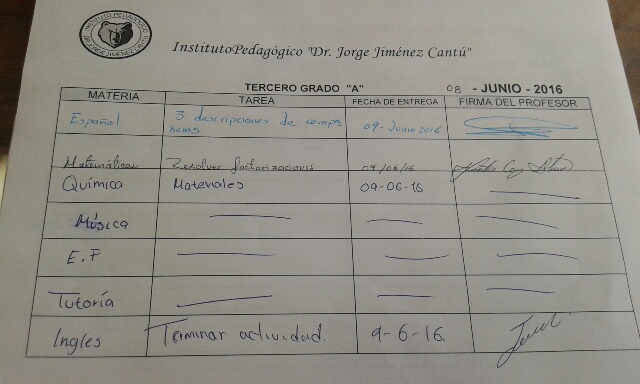 INSTITUTO PEDAGÓGICO
DR. JORGE JIMÉNEZ CANTÚ
InstitutoPedagógico "Dr. Jorge Jiménez Cantú"
TERCERO GRADO "A" 08 - JUNIO - 2016
MATERIA TAREA FECHA DE ENTREGA FIRMA DEL PROFESOR
Español 3 descripciones de compa 09-Junio 2016
ñeros
Matemáticas Resolver factorizaciones 09/06/16
Química Materiales 09-06-16
Música
E.F
Tutoría
Ingles Terminar actividad. 9-6-16.